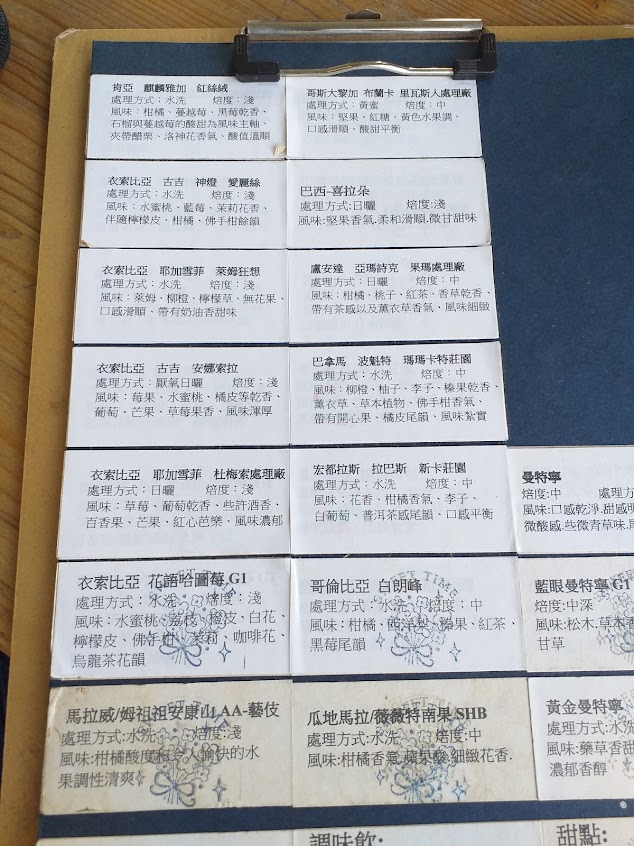 肯亞 麒麟雅加 紅絲絨
處理方式:水洗 焙度:淺
風味:柑橘、蔓越莓、黑莓乾香、
石榴與蔓越莓的酸甜為風味主軸、
夾帶醋栗、洛神花香氣、酸值溫順
哥斯大黎加 布蘭卡 里瓦斯人處理廠
處理方式:黃蜜 焙度:中
風味:堅果、紅糖、黃色水果調、
口感滑順、酸甜平衡
衣索比亞 古吉 神燈 愛麗絲
處理方式:水洗 焙度:淺
風味:水蜜桃、藍莓、茉莉花香、
伴隨檸檬皮、柑橘、佛手柑餘韻
巴西-喜拉朵
處理方式:日曬 焙度:淺
風味:堅果香氣.柔和滑順.微甘甜味
衣索比亞 耶加雪菲 萊姆狂想
處理方式:水洗 焙度:淺
風味:萊姆、柳橙、檸檬草、無花果、
口感滑順、帶有奶油香甜味
盧安達 亞瑪詩克 果瑪處理廠
處理方式:日曬 焙度:中
風味:柑橘、桃子、紅茶、香草乾香、
帶有茶感以及薰衣草香氣、風味細緻
衣索比亞 古吉 安娜索拉
處理方式:厭氧日曬 焙度:淺
風味:莓果、水蜜桃、橘皮等乾香、
葡萄、芒果、草莓果香、風味渾厚
巴拿馬 波魁特 瑪瑪卡特莊園
處理方式:水洗 焙度:中
風味:柳橙、柚子、李子、榛果乾香、
薰衣草、草本植物、佛手柑香氣、
帶有開心果、橘皮尾韻、風味紮實
衣索比亞 耶加雪菲 杜梅索處理廠
處理方式:日曬 焙度:淺
風味:草莓、葡萄乾香、些許酒香、
百香果、芒果、紅心芭樂、風味濃郁
宏都拉斯 拉巴斯 新卡莊園
處理方式:水洗 焙度:中
風味:花香、柑橘香氣、李子、
白葡萄、普洱茶感尾韻、口感平衡
曼特寧
焙度:中 處理方
風味:口感乾淨.甜感
微酸感.些微青草味.
衣索比亞 花語哈圖莓 G1
處理方式:水洗 焙度:淺
風味:水蜜桃、荔枝、橙皮、白花、
檸檬皮、佛手柑、茉莉、咖啡花、
烏龍茶花韻
哥倫比亞 白朗峰
處理方式:水洗 焙度:中
風味:柑橘、西洋梨、榛果、紅茶、
黑莓尾韻
藍眼曼特寧 G1
焙度:中深
風味:松木.草本
甘草
馬拉威/姆祖祖安康山 AA-藝伎
處理方式:水洗 焙度:淺
風味:柑橘酸度和令人愉快的水
果調性清爽
瓜地馬拉/薇薇特南果 SHB
處理方式:水洗 焙度:中
風味:柑橘香氣.蘋果酸.細緻花香.
黃金曼特寧
處理方式:水洗
風味:藥草香甜
濃郁香醇
調味飲:
甜點: